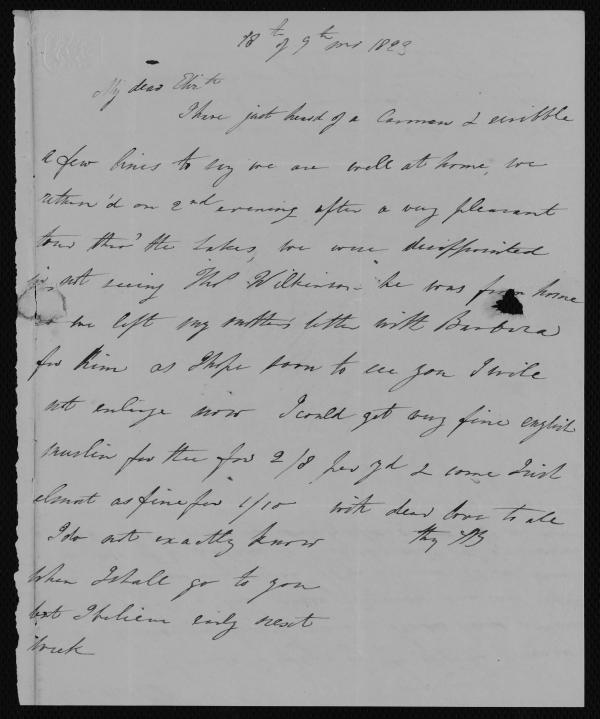 18th of 9th mo 1823
My dear Elizth
I have just heard of a Carman & scribble
a few lines to say we are well at home, we
return'd on 2nd evening after a very pleasant
tour thro' the Lakes, we were disappointed
in not seeing Thos Wilkinson - he was from home
so we left my mother's letter with Barbara
for him as I hope soon to see you I will
not enlarge now I could get very fine english
muslin for thee for 2/8 per yd & some Irish
almost as fine for 1/10 with dear love to all
I do not exactly know thy
when I shall go to you
but I believe early next
week